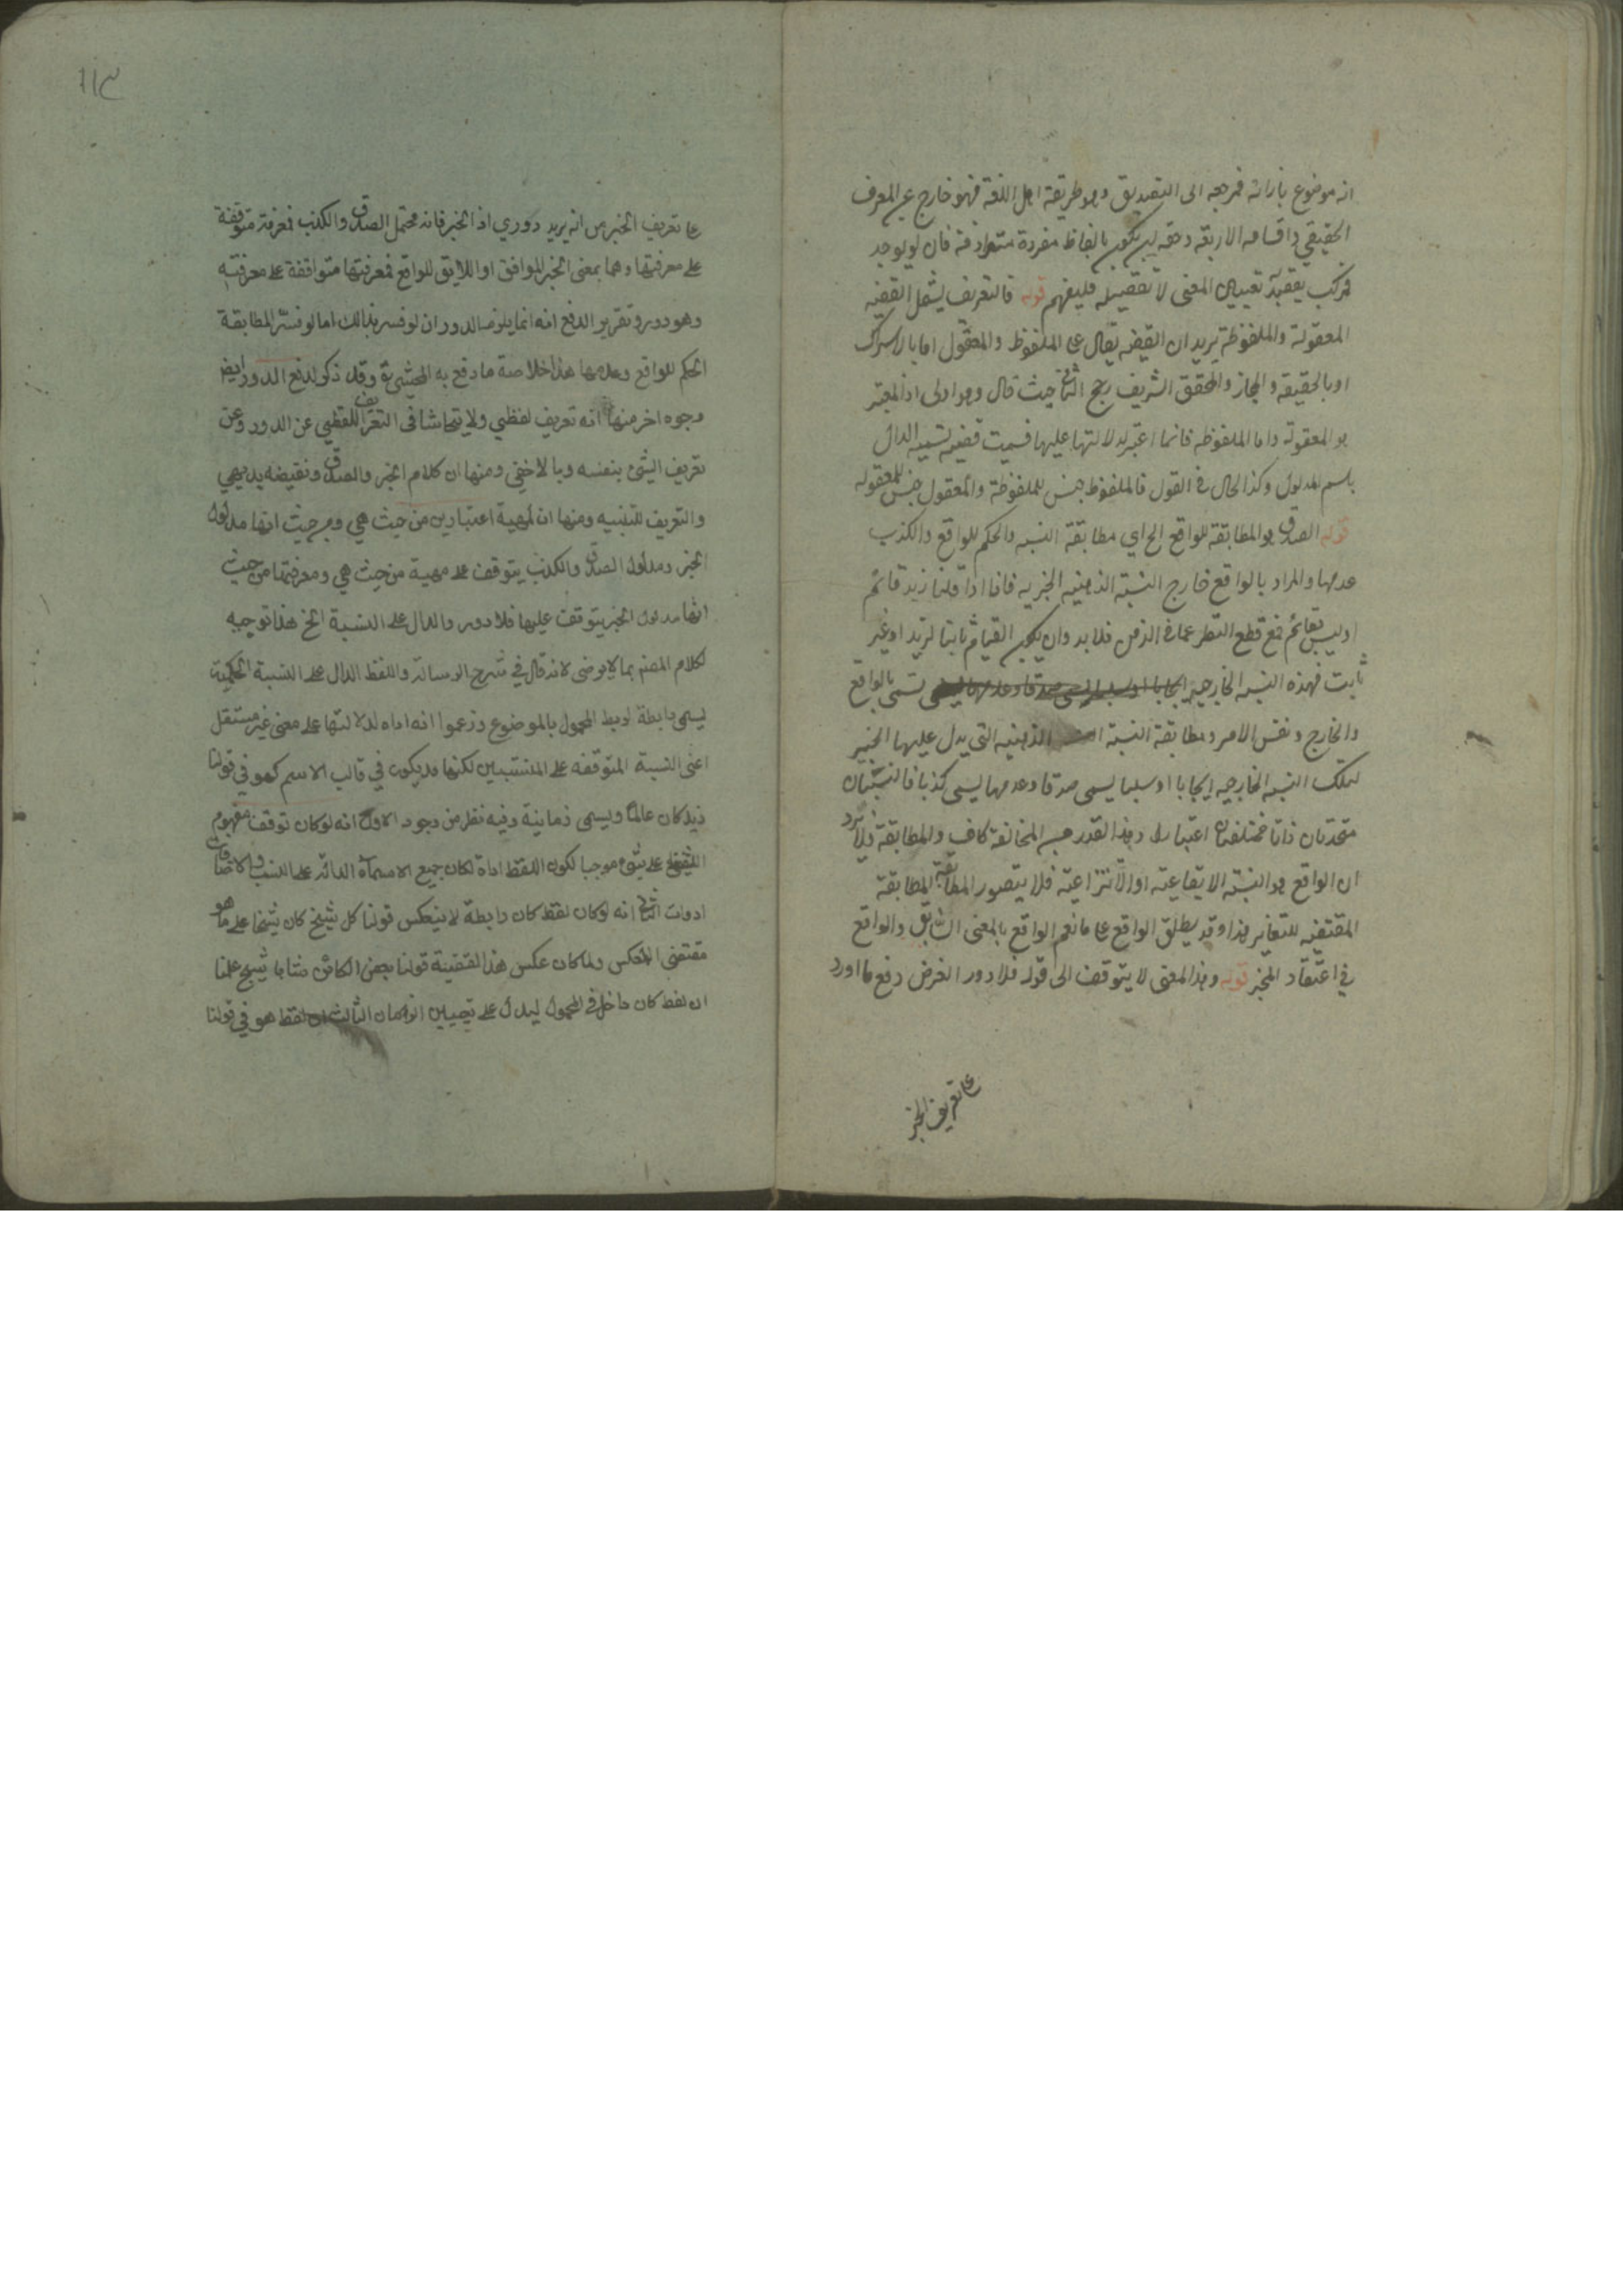 انه موضوع بازائه فمرجعه الى التصديق وهو طريقة اهل اللغة فهو خارج عن المعرف
الحقيقي واقسامه الاربعة وحقه ان يكون بالفاظ مفردة مترادفة فان لم يوجد
فمركب يقصد به تعيين المعنى لا تفصيله فليفهم قوله فالتعريف يشمل القضية
المعقولة والملفوظة يريد ان القضية يقال على الملفوظ والمعقول اما بالاشتراك
او بالحقيقة والمجاز والمحقق الشريف رجح الثاني حيث قال وهو اولى اذ المعتبر
هو المعقولة واما الملفوظة فانما اعتبر لدلالتها عليها فسميت قضية تسمية الدال
باسم المدلول وكذا الحال في القول فالملفوظ جنس للملفوظة والمعقول جنس للمعقولة
قوله الصدق هو المطابقة للواقع الخ اي مطابقة النسبة والحكم للواقع والكذب
عدمها والمراد بالواقع خارج النسبة الذهنية الخبرية فانا اذا قلنا زيد قائم
او ليس بقائم فمع قطع النظر عما في الذهن فلا بد وان يكون القيام ثابتا لزيد او غير
ثابت فهذه النسبة الخارجية تسمى بالواقع
والخارج ونفس الامر ومطابقة النسبة الذهنية التي يدل عليها الخبر
لتلك النسبة الخارجية ايجابا او سلبا يسمى صدقا وعدمها يسمى كذبا فالنسبتان
متحدتان ذاتا مختلفتان اعتبارا وهذا القدر من المخالفة كاف والمطابقة فلا يرد
ان الواقع هو النسبة الايقاعية او الانتزاعية فلا يتصور المطابقة
المقتضية للتغاير هذا وقد يطلق الواقع على ما نعم الواقع بالمعنى السابق والواقع
في اعتقاد المخبر قوله وهذا المعنى لا يتوقف الى قوله فلا دور الغرض دفع ما اورد
على تعريف الخبر
١١٣
على تعريف الخبر من انه يريد دوري اذ الخبر فانه محتمل الصدق والكذب فمعرفته متوقفة
على معرفتها وهما بمعنى الخبر الموافق او اللايق للواقع فمعرفتها متوافقة على معرفته
وهو دور وتقرير الدفع انه انما يلزم الدور ان لو فسر بذالك اما لو فسر المطابقة
الحكم للواقع وعدمها هذا خلاصة ما دفع به المحشي وقد ذكر لدفع الدور ايض
وجوه اخر منها انه تعريف لفظي ولا يتحاشا في التعريف اللفظي عن الدور وعن
تعريف الشئ بنفسه وبالاخفى ومنها ان كلام الخبر والصدق ونقيضه بديهي
والتعريف للتنبيه ومنها ان لمهية اعتبارين من حيث هي ومن حيث انها مدلول
الخبر ومدلول الصدق والكذب يتوقف على مهية من حيث هي ومعرفتها من حيث
انها مدلول الخبر يتوقف عليها فلا دور والدال على النسبة الخ هذا توجيه
لكلام المصنم بما لا يرضى لانه قال في شرح الرسالة واللفظ الدال على النسبة الحكمية
يسمى رابطة لربط المحمول بالموضوع وزعموا انه اداه لدلالتها على معنى غير مستقل
اعنى النسبة المتوقفه على المنتسبين لكنها قد يكون في قالب الاسم كهو في قولنا
زيد كان عالما ويسمى زمانية وفيه نظر من وجود الاول انه لو كان توقف مفهوم
اللفظ على شئ موجبا لكون اللفظ اداة لكان جميع الاسماء الدالة على النسب والاضافات
ادوات الثاني انه لو كان لفظ كان رابطة لا ينعكس قولنا كل شيخ كان شيخا على ما هو
مقتضى العكس ولما كان عكس هذا القضية قولنا بعض الكائن شابا شيخ علمنا
ان لفظ كان داخل في المحمول ليدل على تعيين الزمان الثالث ان لفظ هو في قولنا